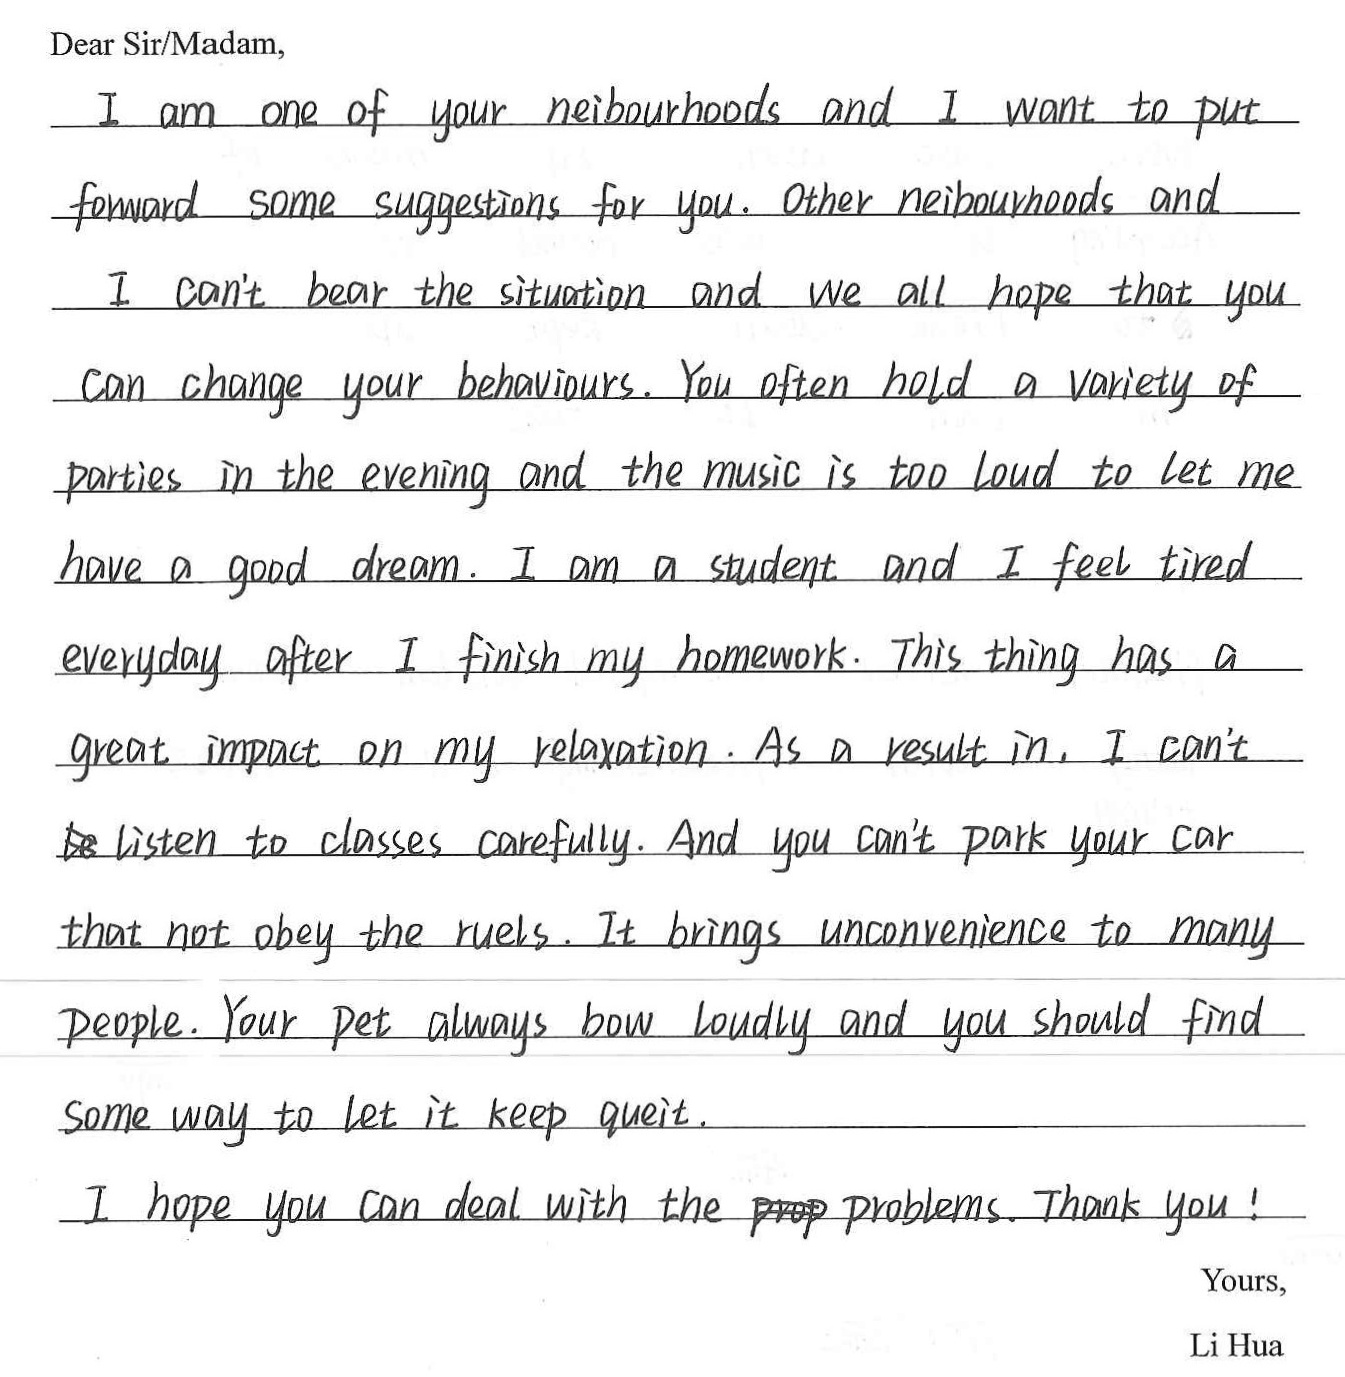 Dear Sir/Madam,
I am one of your neibourhoods and I want to put
forward some suggestions for you. Other neibourhoods and
I can't bear the situation and we all hope that you
can change your behaviours. You often hold a variety of
parties in the evening and the music is too loud to let me
have a good dream. I am a student and I feel tired
everyday after I finish my homework. This thing has a
great impact on my relaxation. As a result in, I can't
listen to classes carefully. And you can't park your car
that not obey the ruels. It brings unconvenience to many
people. Your pet always bow loudly and you should find
some way to let it keep queit.
I hope you can deal with the problems. Thank you!
Yours,
Li Hua